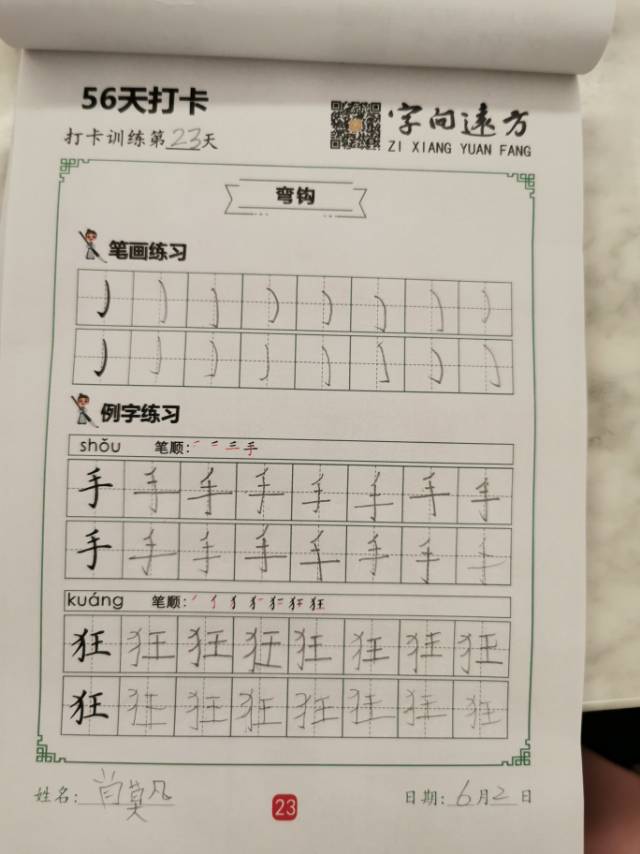 56天打卡
字向远方
打卡训练第23天
ZI XIANG YUAN FANG
弯钩
笔画练习
例字练习
shǒu 笔顺:
手 手 手 手 手 手 手 手
手 手 手 手 手 手 手 手
kuáng 笔顺:
狂 狂 狂 狂 狂 狂 狂 狂
狂 狂 狂 狂 狂 狂 狂 狂
姓名: 肖莫凡 23 日期: 6月2日